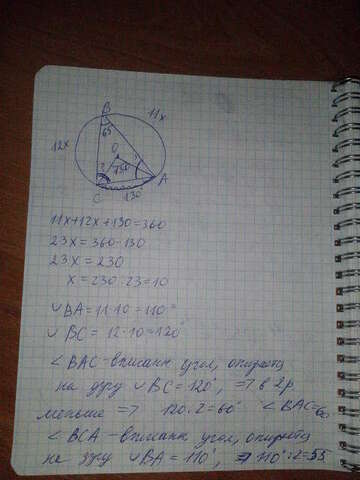 B
11x
65
12x
O
130
A
C
130
11x+12x+130=360
23x=360-130
23x=230
x=230:23=10
∪BA=11·10=110°
∪BC=12·10=120°
∠BAC-вписанн угол, опирается
на дугу ∪BC=120°, => в 2р.
меньше => 120:2=60° ∠BAC=60
∠BCA-вписанн угол, опирается
на дугу ∪BA=110°, => 110°:2=55